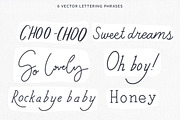 6 VECTOR LETTERING PHRASES
CHOO-CHOO Sweet dreams
So lovely Oh boy!
Rockabye baby Honey